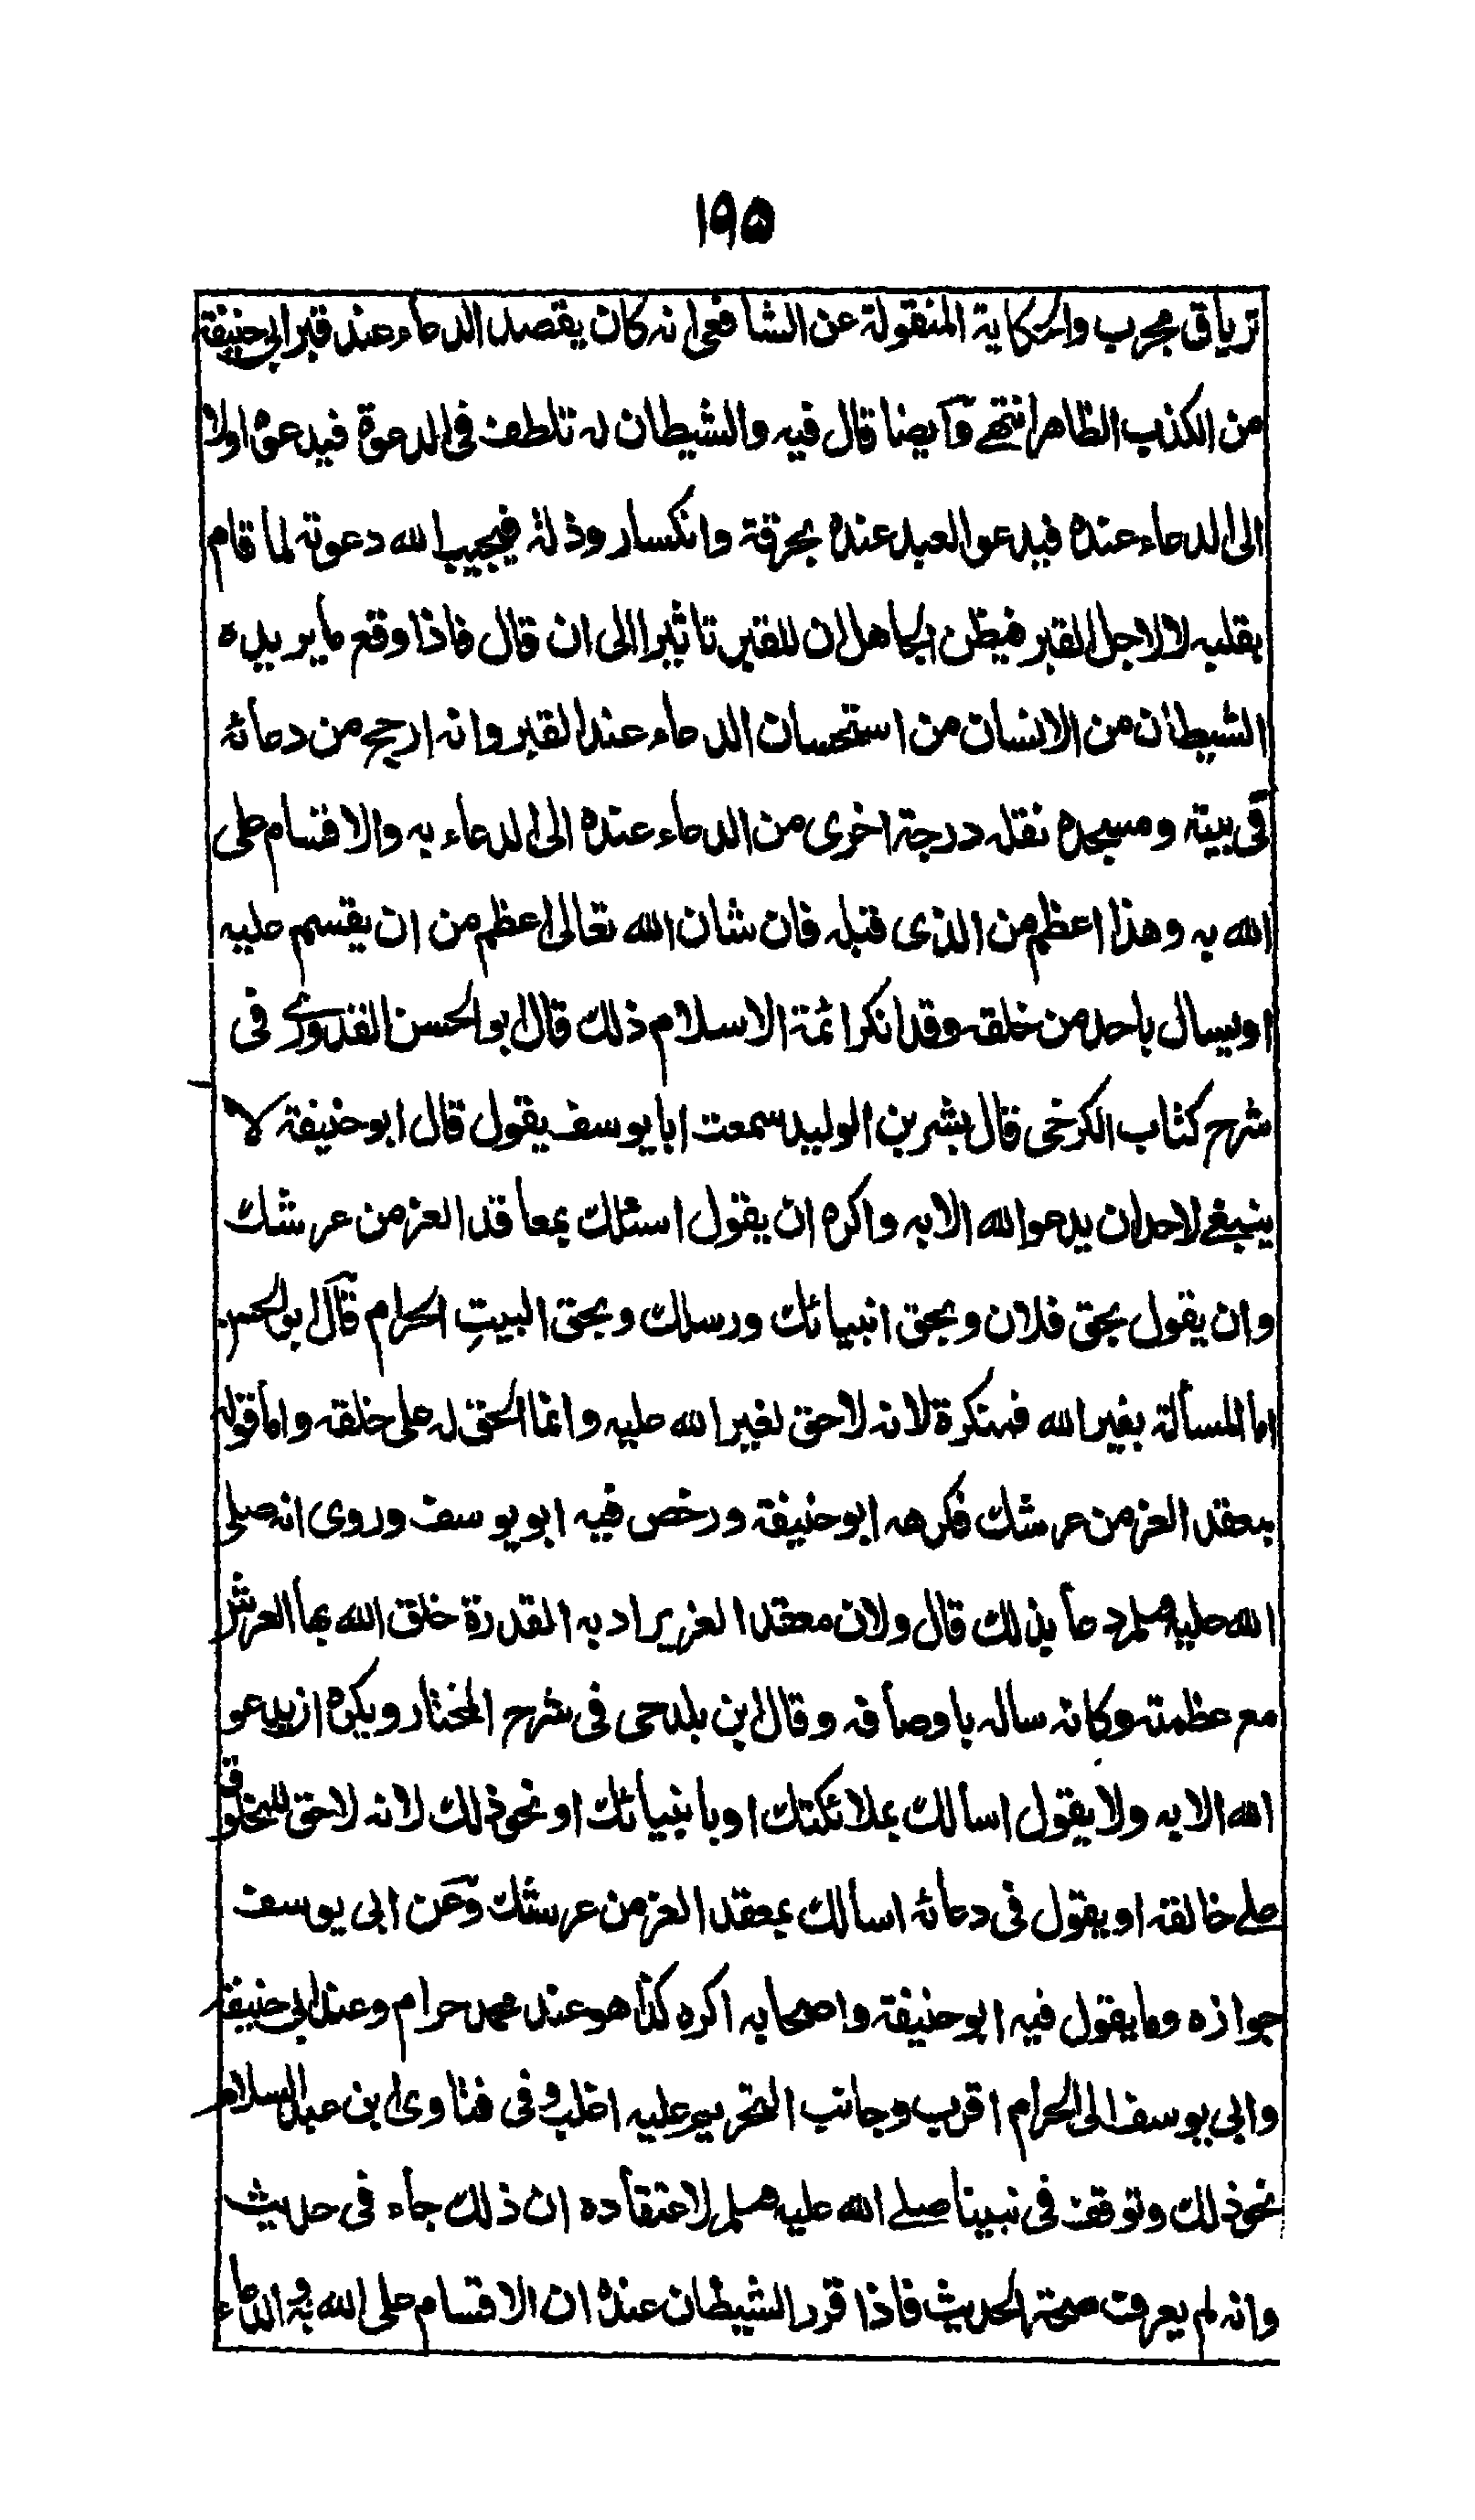 ١٩٥
ترياق مجرب والحكاية المنقولة عن الشافعى انه كان يقصد الدعاء عند قبر ابى حنيفة
من الكذب الظاهر انتهى وآيضا قال فيه والشيطان له تلطف فى الدعوة فيدعوه اولا
الى الدعاء عنده فيدعو العبد عنده بحرقة وانكسار وذلة فيجيب الله دعوته لما قام
بقلبه لا لاجل القبر فيظن الجاهل ان للقبر تاثيرا الى ان قال فاذا وقع ما يريده
الشيطان من الانسان من استحسان الدعاء عند القبر وانه ارجح من دعائه
فى بيته ومسجده نقله درجة اخرى من الدعاء عنده الى الدعاء به والاقسام على
الله به وهذا اعظم من الذى قبله فان شان الله تعالى اعظم من ان يقسم عليه
او يسال باحد من خلقه وقد انكر ائمة الاسلام ذلك قال ابو الحسن القدورى فى
شرح كتاب الكرخى قال بشر بن الوليد سمعت ابا يوسف يقول قال ابو حنيفة لا
ينبغى لاحد ان يدعو الله الا به واكره ان يقول اسئلك بمعاقد العز من عرشك
وان يقول بحق فلان وبحق انبيائك ورسلك وبحق البيتِ الحرام قآل ابو الحسن
اما المسألة بغير الله فمنكرة لانه لا حق لغير الله عليه وانما الحق له على خلقه واما قوله
بمعقد العز من عرشك فكرهه ابو حنيفة ورخص فيه ابو يوسف وروى انه صلى
الله عليه وسلم دعا بذلك قال ولان معقد العز يراد به القدرة خلق الله بها العرش
مع عظمته وكانه ساله باوصافه وقال ابن بلدحى فى شرح المختار ويكره ان يدعو
الله الا به ولا يقول اسالك بملائكتك او بانبيائك او نحو ذلك لانه لا حق للمخلوق
على خالقه او يقول فى دعائه اسالك بمعقد العز من عرشك وعن ابى يوسف
جوازه وما يقول فيه ابو حنيفة واصحابه اكره كذا هو عند محمد حرام وعند ابى حنيفة
وابى يوسف الى الحرام اقرب وجانب التحريم عليه اغلب وفى فتاوى ابن عبد السلام
نحو ذلك وتوقف فى نبينا صلى الله عليه وسلم لاعتقاده ان ذلك جاء فى حديث
وانه لم يعرف صحة الحديث فاذا قرر الشيطان عنده ان الاقسام على الله به والدعاء